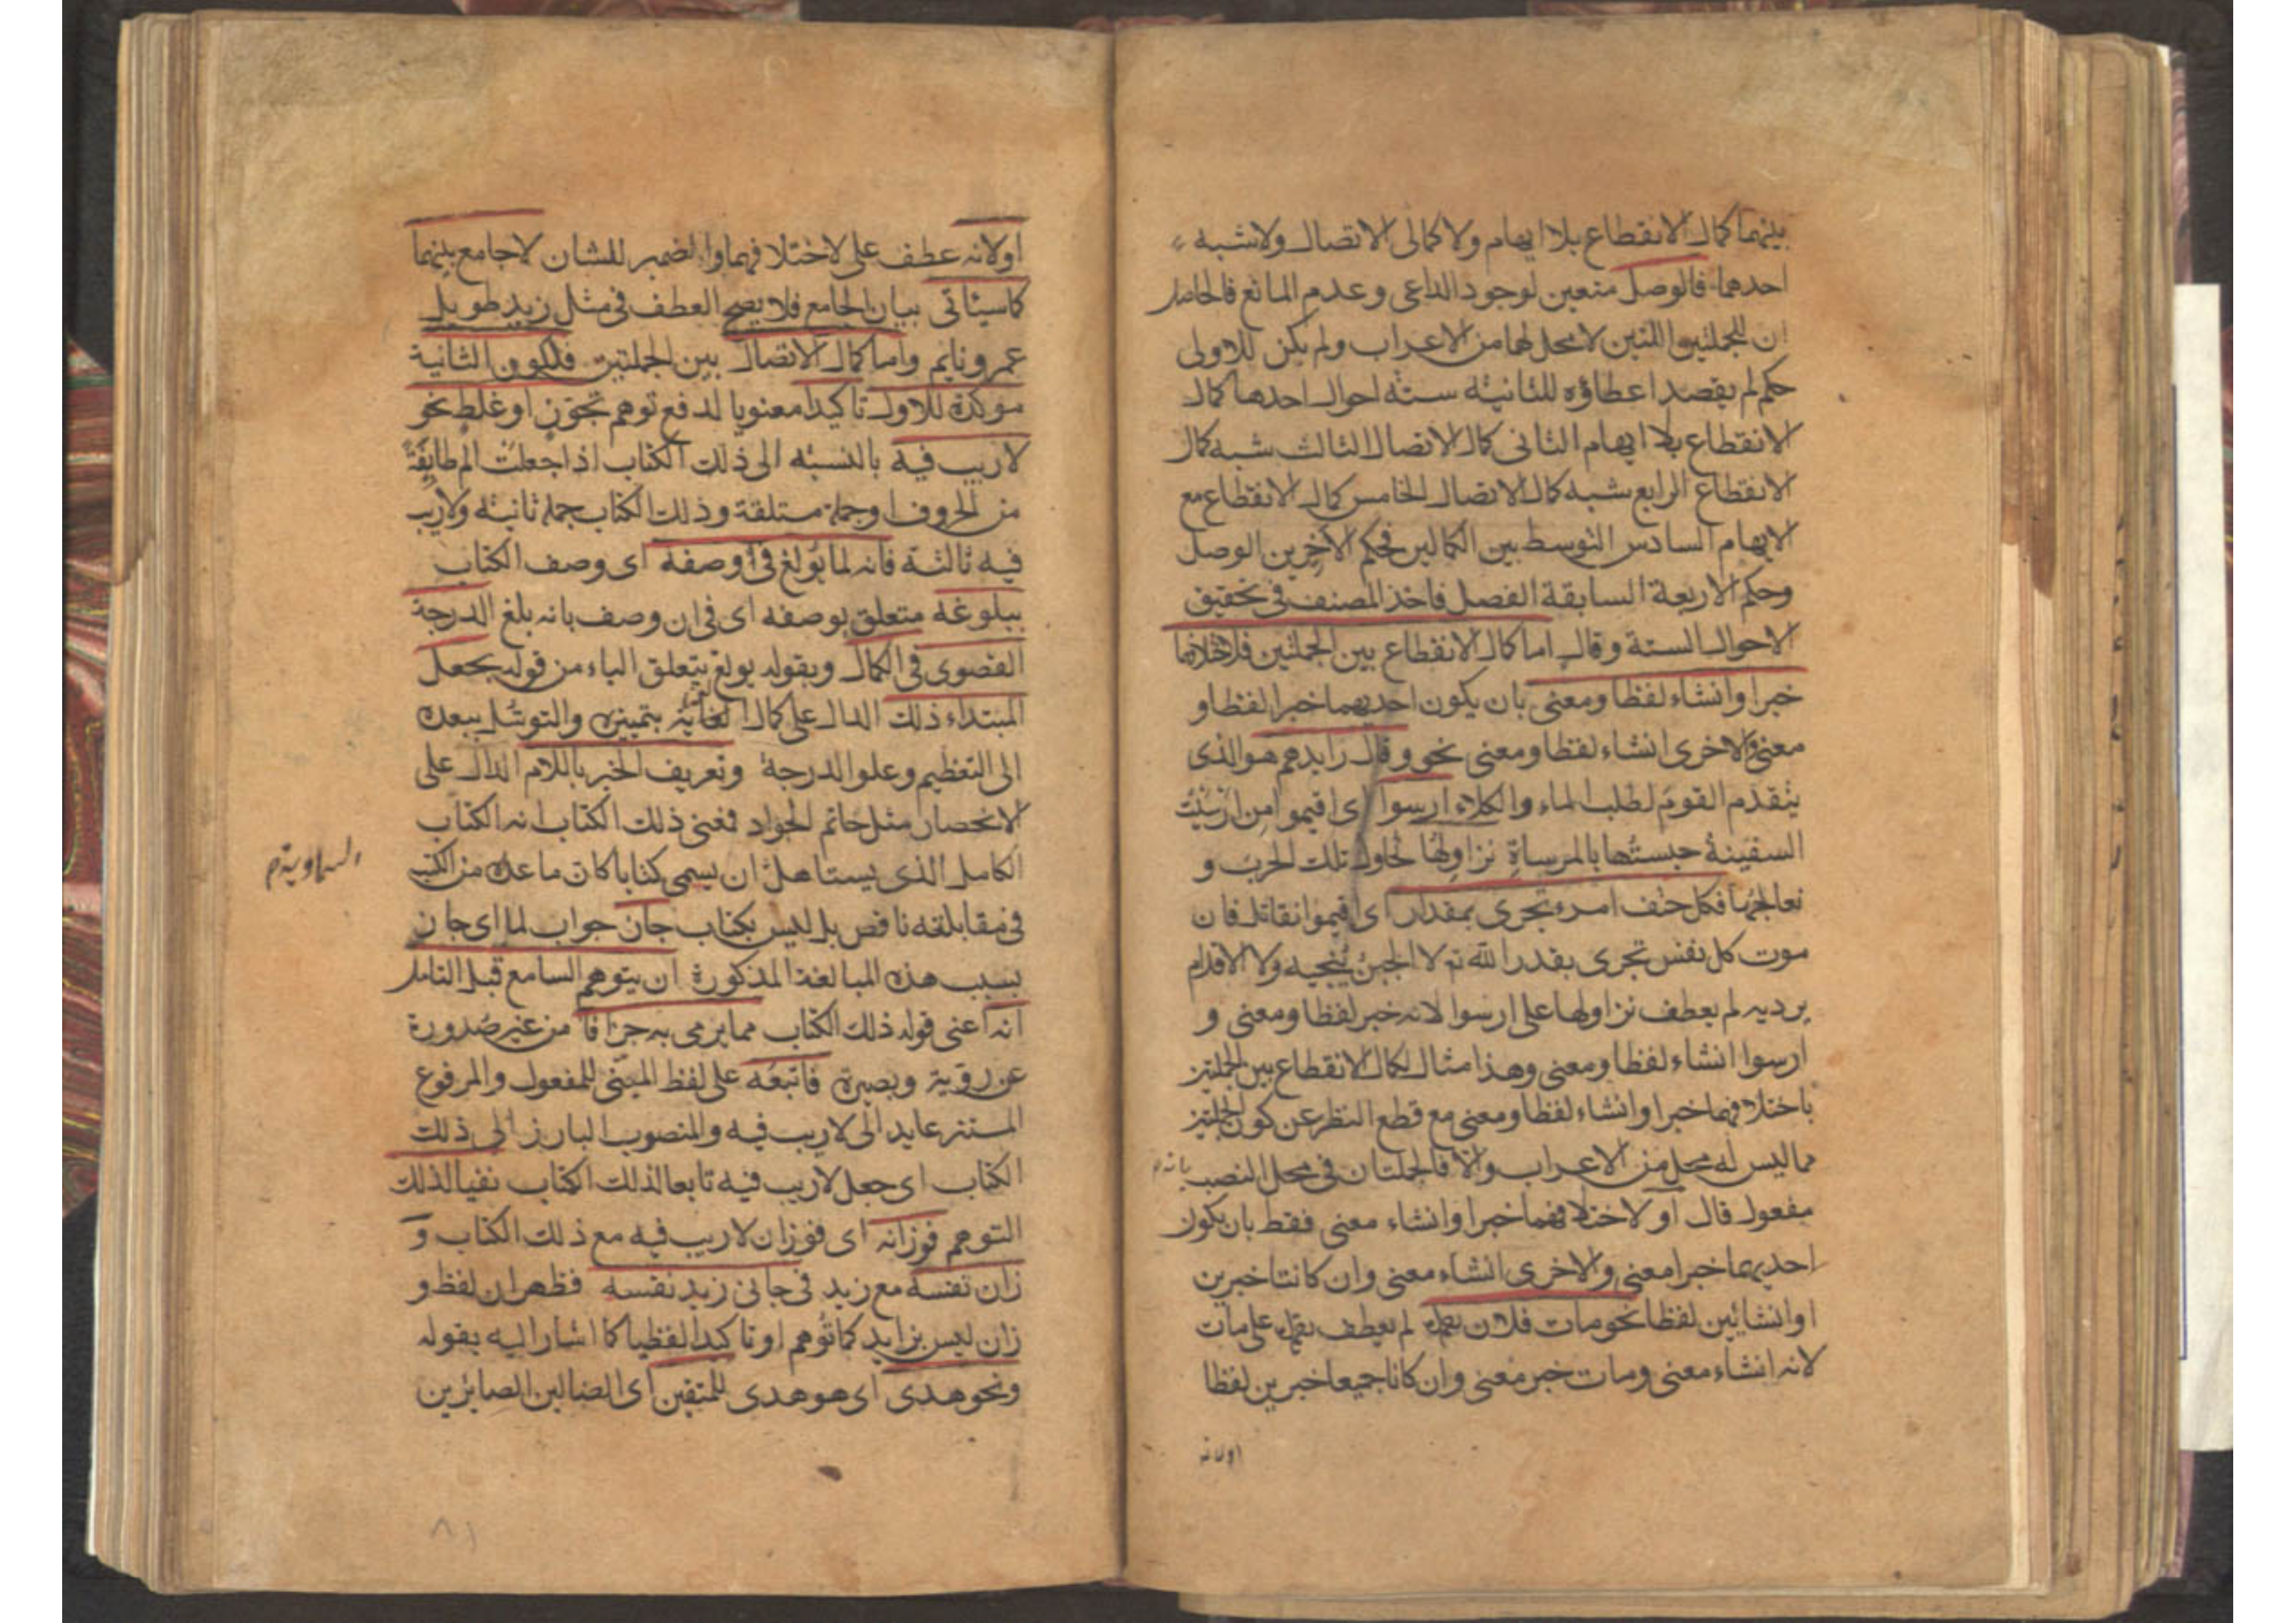 بينهما كمال الانقطاع بلا ايهام ولا كمالى الاتصال ولا شبه
احدهما فالوصل متعين لوجود الداعى وعدم المانع فالحاصل
ان للجملتين اللتين لا محل لها من الاعراب ولم يكن للاولى
حكم لم يقصد اعطاؤه للثانية ستة احوال احدها كمال
الانقطاع بلا ايهام الثانى كمال الاتصال الثالث شبه كمال
الانقطاع الرابع شبه كمال الاتصال الخامس كمال الانقطاع مع
الايهام السادس التوسط بين الكمالين فحكم الآخرين الوصل
وحكم الاربعة السابقة الفصل فاخذ المصنف فى تحقيق
الاحوال الستة وقال اما كمال الانقطاع بين الجملتين فلاختلافهما
خبرا وانشاء لفظا ومعنى بان يكون احديهما خبرا لفظا و
معنى والاخرى انشاء لفظا ومعنى نحو وقال رايدهم هو الذى
يتقدم القوم لطلب الماء والكلاء ارسوا اى اقيموا من ارسيت
السفينة حبستها بالمرساة نزاولها نحاول تلك الحرب و
نعالجها فكل حتف امرء تجرى بمقدار اى اقيموا نقاتل فان
موت كل نفس تجرى بقدر الله تم لا الجبن ينجيه ولا الاقدام
يرديه لم يعطف نزاولها على ارسوا لانه خبر لفظا ومعنى و
ارسوا انشاء لفظا ومعنى وهذا مثال لكمال الانقطاع بين الجملتين
باختلافهما خبرا وانشاء لفظا ومعنى مع قطع النظر عن كون الجملتين
مما ليس له محل من الاعراب والا فالجملتان فى محل النصب بانه م
مفعول قال او لاختلافهما خبرا وانشاء معنى فقط بان يكون
احديهما خبرا معنى والاخرى انشاء معنى وان كانتا خبرين
او انشايين لفظا نحو مات فلان لم يعطف على مات
لانه انشاء معنى ومات خبر معنى وان كانا جميعا خبرين لفظا
اولانه
اولانه عطف على لاختلافهما والضمير للشان لا جامع بينهما
كما سيئاتى بيان الجامع فلا يصح العطف فى مثل زيد طويل
عمرو نايم واما كمال الاتصال بين الجملتين فلكون الثانية
موكدة للاول تاكيدا معنويا لدفع توهم تجوّز او غلط نحو
لا ريب فيه بالنسبة الى ذلك الكتاب اذا جعلت الم طايفة
من الحروف او جملة مستلقة وذلك الكتاب جملة ثانية ولا ريب
فيه ثالثة فانه لما بولغ فى وصفه اى وصف الكتاب
ببلوغه متعلق بوصفه اى فى ان وصف بانه بلغ الدرجة
القصوى فى الكمال وبقوله بولغ يتعلق الباء من قوله بجعل
المبتداء ذلك الدال على كمال بتميزه والتوسّل ببعده
الى التعظيم وعلو الدرجة وتعريف الخبر باللام الدال على
الانحصار مثل حاتم الجواد فمعنى ذلك الكتاب انه الكتاب
الكامل الذى يستاهل ان يسمى كتابا كان ما عداه من الكتب
السماوية م
فى مقابلته ناقص بل ليس بكتاب جان جواب لما اى جان
بسبب هذه المبالغة المذكورة ان يتوهم السامع قبل التامل
انه اعنى قوله ذلك الكتاب مما يرمى به جزافا من غير صدورة
عن روية وبصيرة فاتبعه على لفظ المبنى للمفعول والمرفوع
المستتر عايد الى لا ريب فيه والمنصوب البارز الى ذلك
الكتاب اى جعل لا ريب فيه تابعا لذلك الكتاب نفيا لذلك
التوهم فوزانه اى فوزان لا ريب فيه مع ذلك الكتاب و
زان نفسه مع زيد فى جانى زيد نفسه فظهر ان لفظ و
زان ليس بزايد كما توهم او تاكيدا لفظيا كما اشار اليه بقوله
ونحو هدى اى هو هدى للمتقين اى الضالين الصائرين
٨١